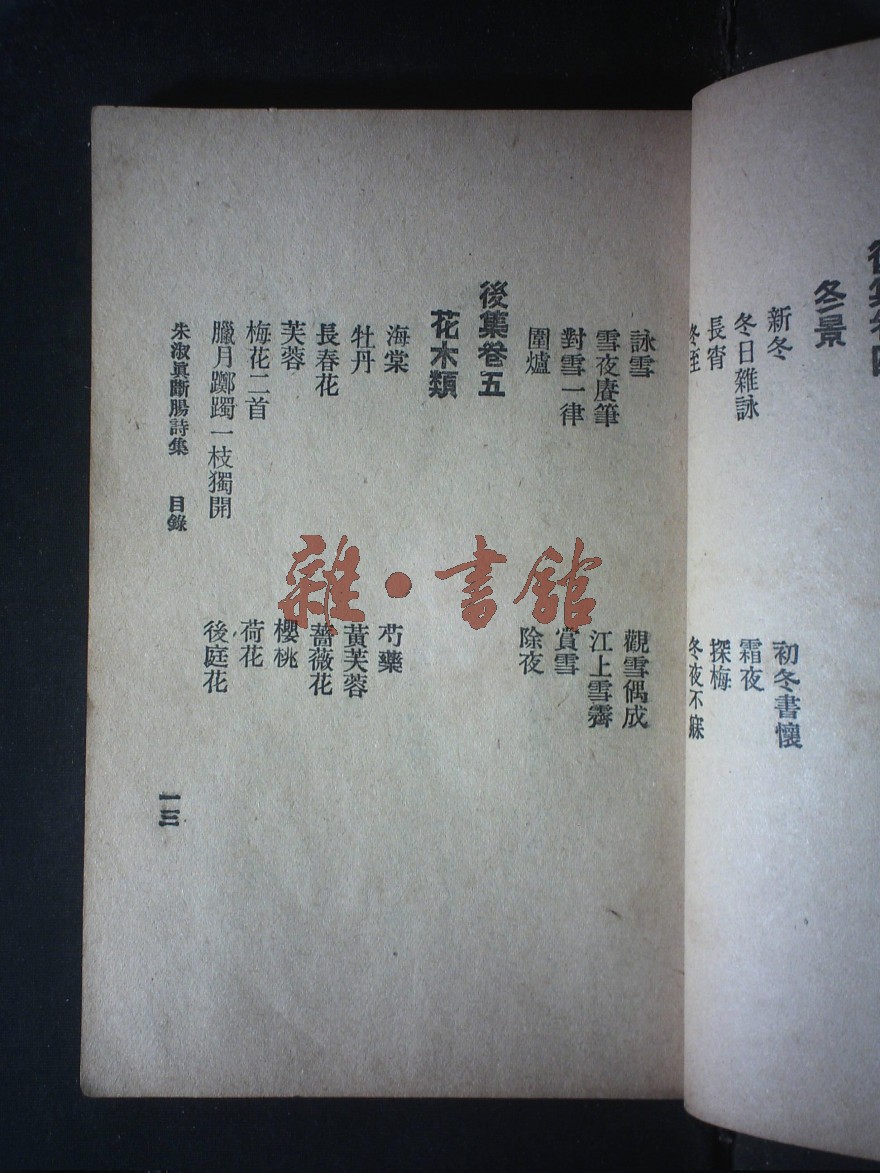 後集卷四
冬景
新冬 初冬書懷
冬日雜詠 霜夜
長宵 探梅
冬至 冬夜不寐
詠雪 觀雪偶成
雪夜賡筆 江上雪霽
對雪一律 賞雪
圍爐 除夜
後集卷五
花木類
海棠 芍藥
牡丹 黃芙蓉
長春花 薔薇花
芙蓉 櫻桃
梅花二首 荷花
臘月躑躅一枝獨開 後庭花
朱淑眞斷腸詩集 目錄 一三
雜·書館